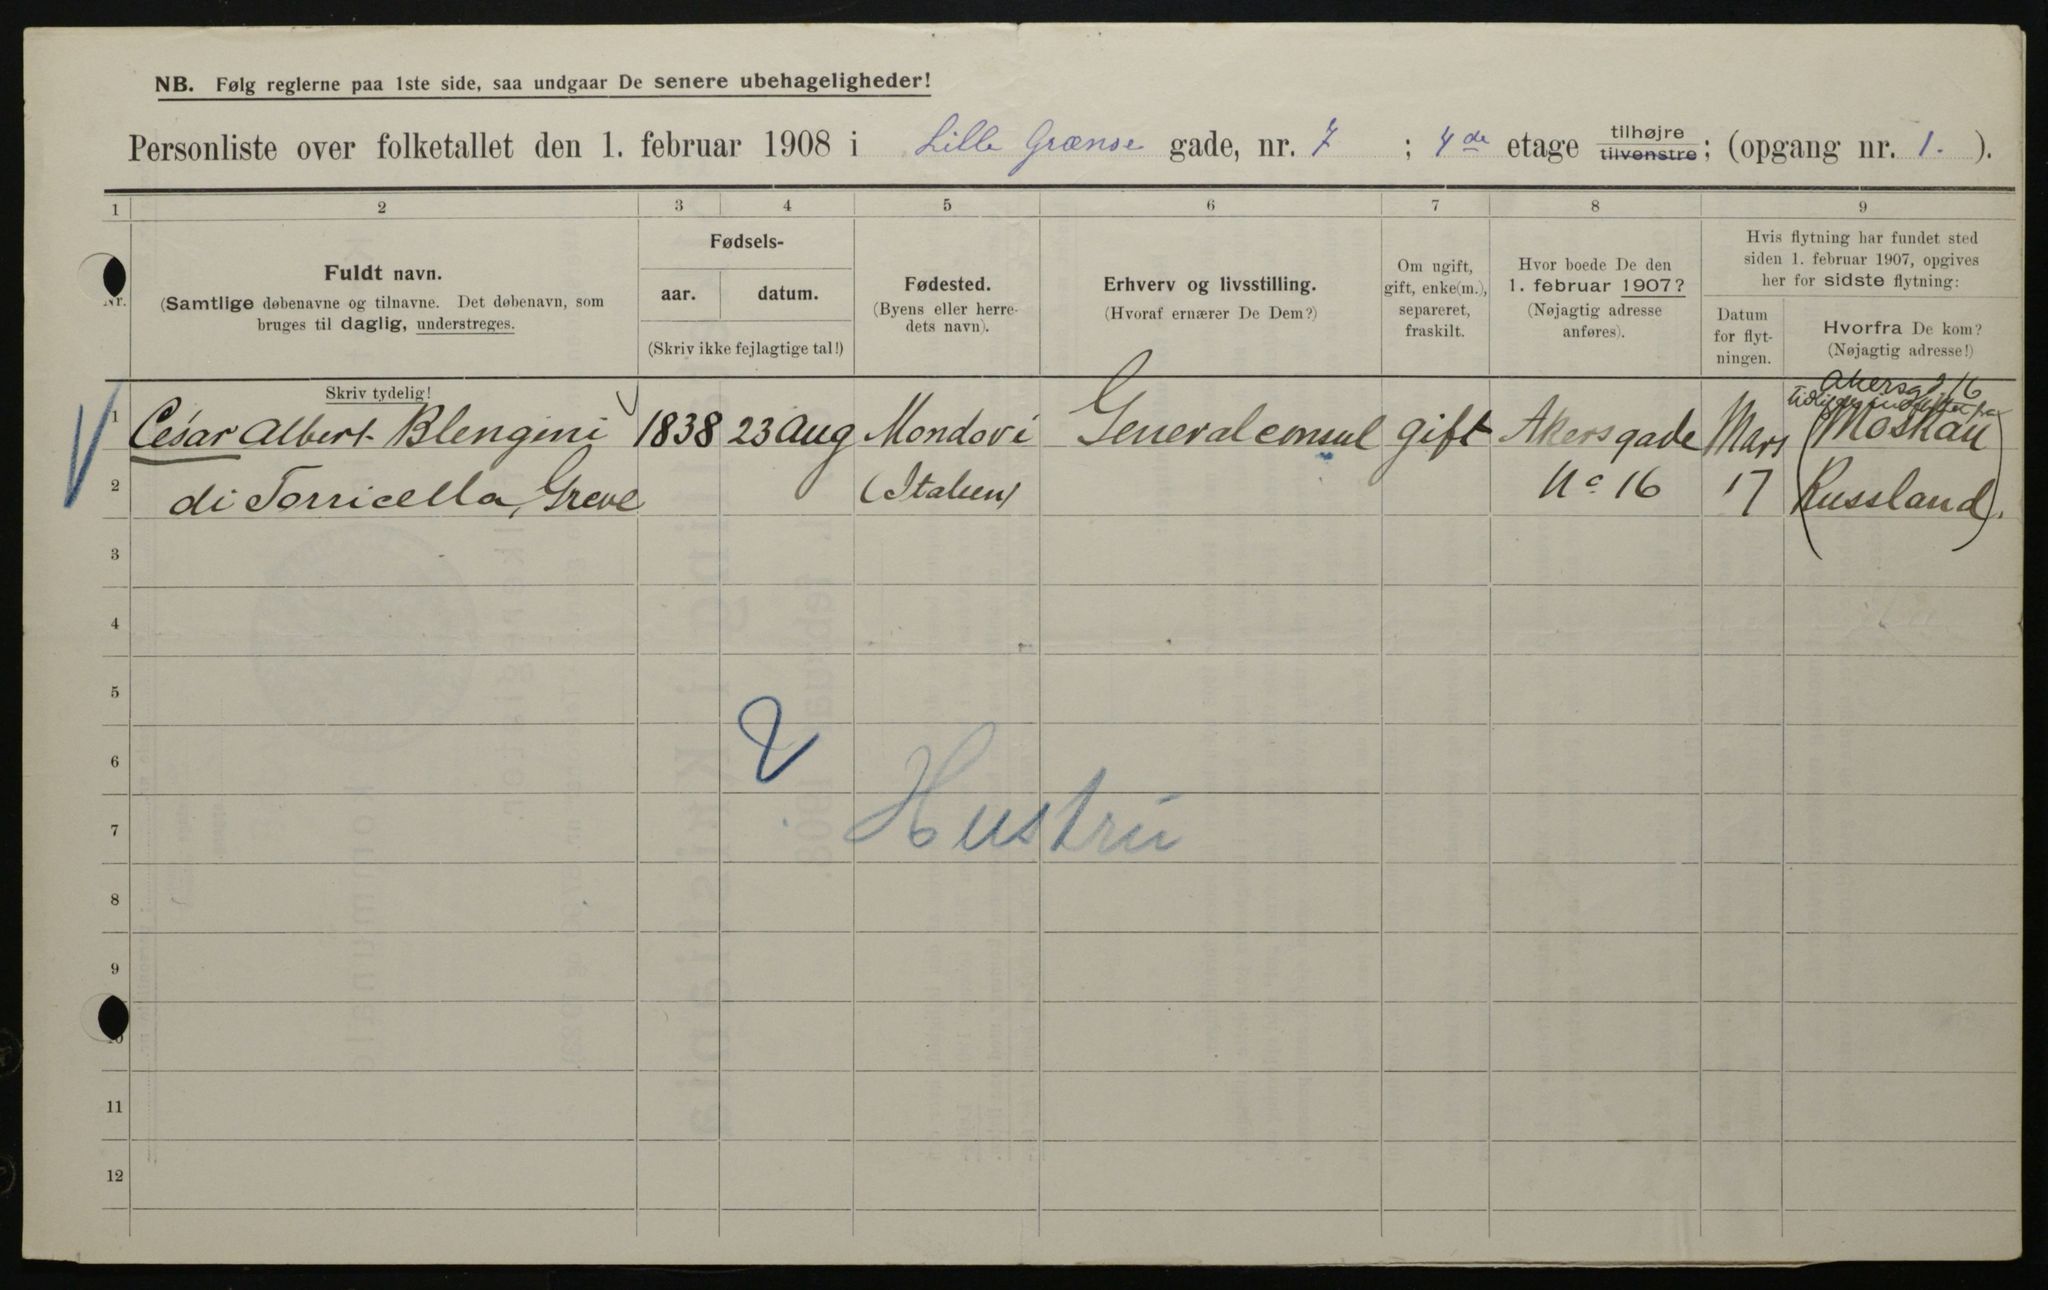 NB. Følg reglerne paa 1ste side, saa undgaar De senere ubehageligheder!
Personliste over folketallet den 1. februar 1908 i Lille Grænse gade, nr. 7 ; 4de etage tilhøjre tilvenstre; (opgang nr. 1. ).
1 2 3 4 5 6 7 8 9
Nr.
Fuldt navn.
(Samtlige døbenavne og tilnavne. Det døbenavn, som
bruges til daglig, understreges.
Skriv tydelig!
Fødsels-
aar. datum.
(Skriv ikke fejlagtige tal!)
Fødested.
(Byens eller herre-
dets navn).
Erhverv og livsstilling.
(Hvoraf ernærer De Dem?)
Om ugift,
gift, enke(m.),
separeret,
fraskilt.
Hvor boede De den
1. februar 1907?
(Nøjagtig adresse
anføres).
Hvis flytning har fundet sted
siden 1. februar 1907, opgives
her for sidste flytning:
Datum
for flyt-
ningen.
Hvorfra De kom?
(Nøjagtig adresse!)
Akersgd 16
1 César Albert Blengini 1838 23 Aug Mondovi Generalconsul gift Akersgade Mars (Moskau
2 di Torricella, Greve (Italien) No 16 17 Russland).
3
4
5
6
7 Hustru
8
9
10
11
12